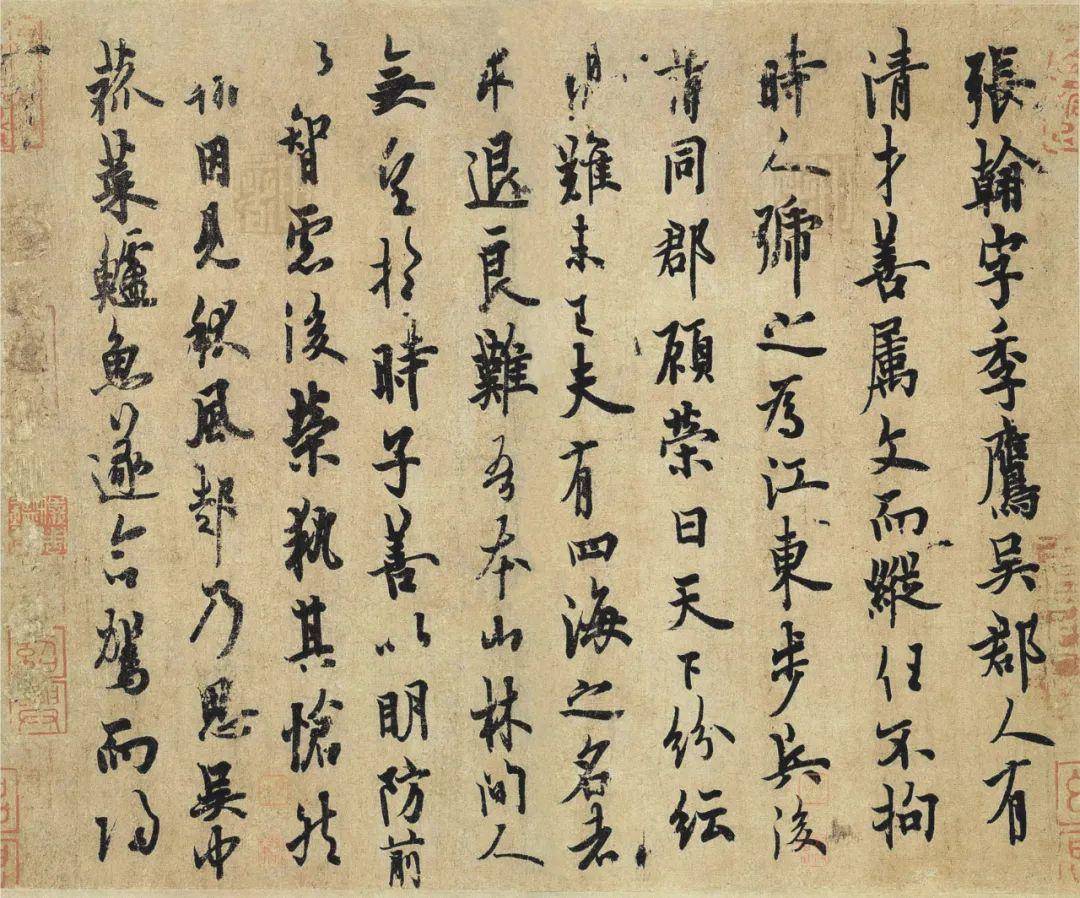 張翰字季鷹吳郡人有
清才善屬文而縱任不拘
時人號之為江東步兵後
謂同郡顧榮曰天下紛紜
難未已夫有四海之名者
求退良難吾本山林間人
無望於時子善以明防前
以智慮後榮執其愴然
因見秋風起乃思吳中
菰菜鱸魚遂命駕而歸